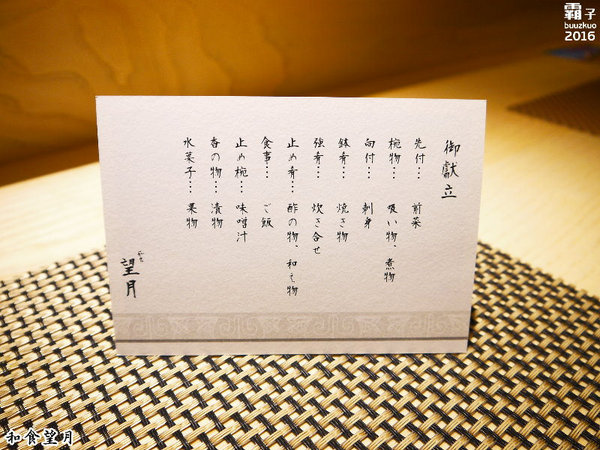 御献立
先付… 前菜
椀物… 吸い物、煮物
向付… 刺身
鉢肴… 焼き物
強肴… 炊き合せ
止め肴… 酢の物、和え物
食事… ご飯
止め椀… 味噌汁
香の物… 漬物
水菓子… 果物
望月
霸子
buuzkuo
2016
和食望月